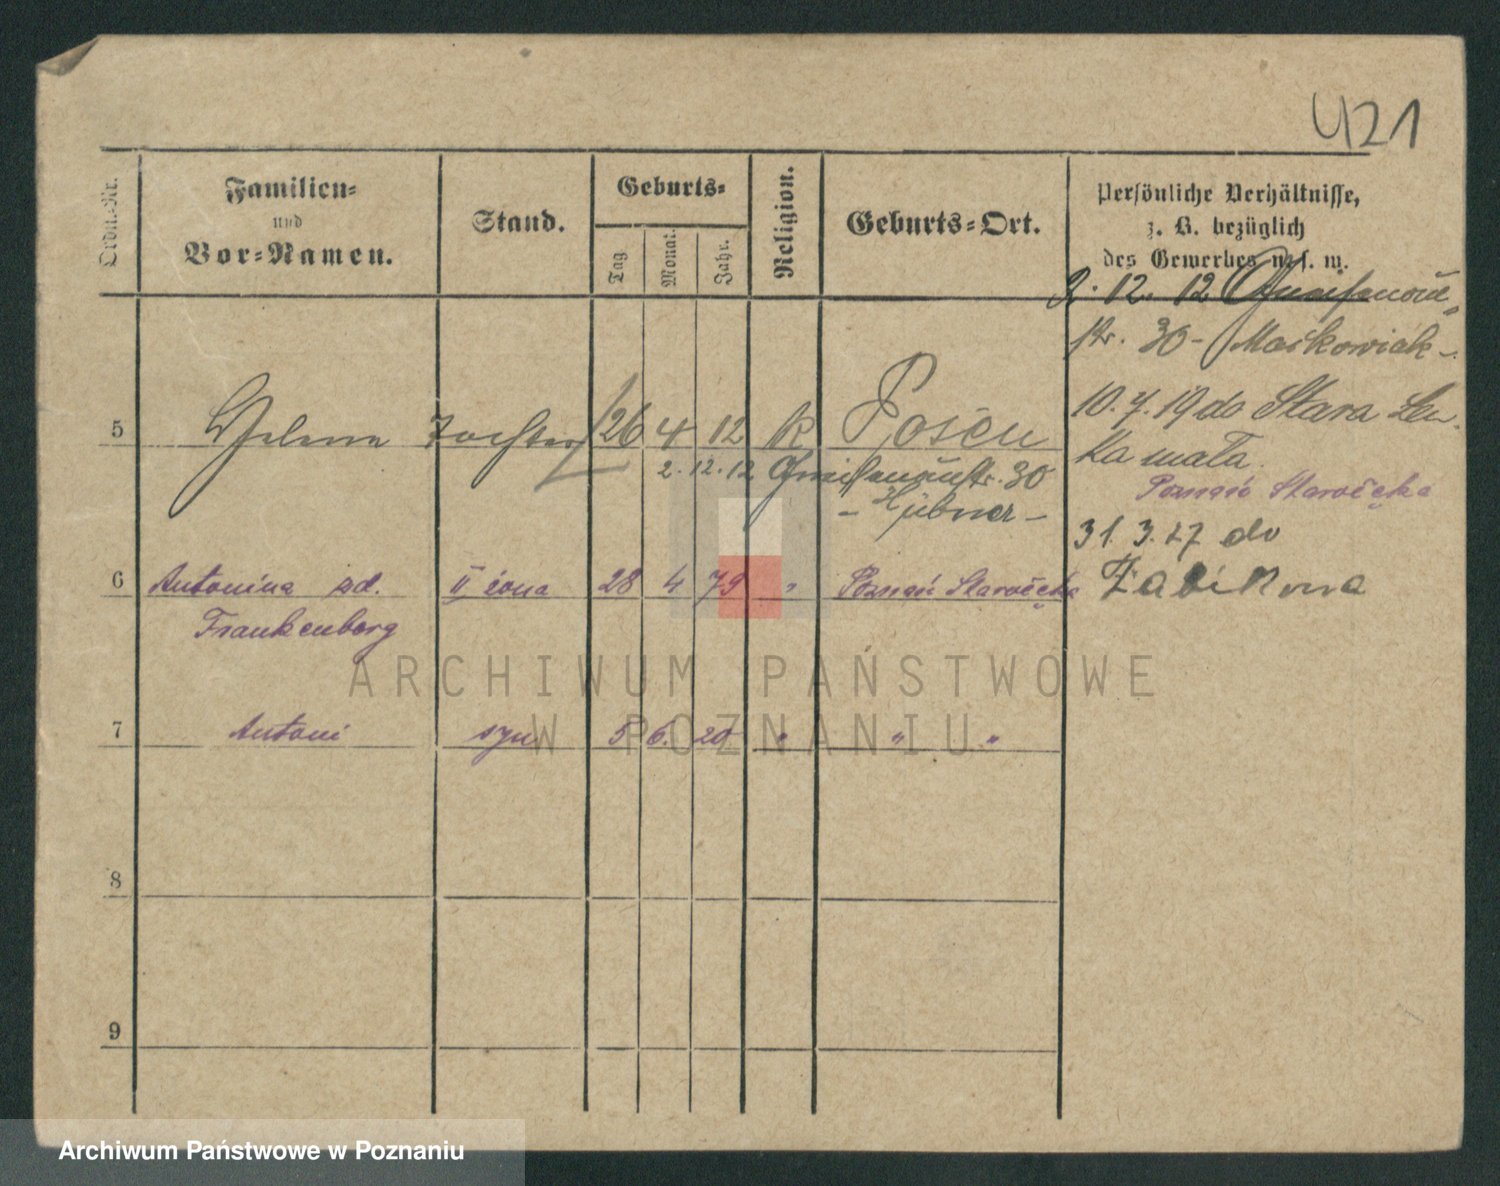 421
Ordn.-Nr.
Familien-
und
Vor-Namen.
Stand.
Geburts-
Tag
Monat.
Jahr.
Religion.
Geburts-Ort.
Persönliche Verhältnisse,
z. B. bezüglich
des Gewerbes u. s. w.
2. 12. 12 Gneisenau-
str. 30 - Maćkowiak -
5 Helene Tochter 26 4 12 K Posen
2. 12. 12 Gneisenaustr. 30
- Hübner -
10. 7. 19 do Stara
mała
Poznań Starołęka
31. 3. 27 do
Żabikowa
6 Antonina zd. II żona 28 4 79 " Poznań Starołęka
Frankenberg
7 Antoni syn 5 6. 20 " " "
8
9
ARCHIWUM PAŃSTWOWE
W POZNANIU
Archiwum Państwowe w Poznaniu